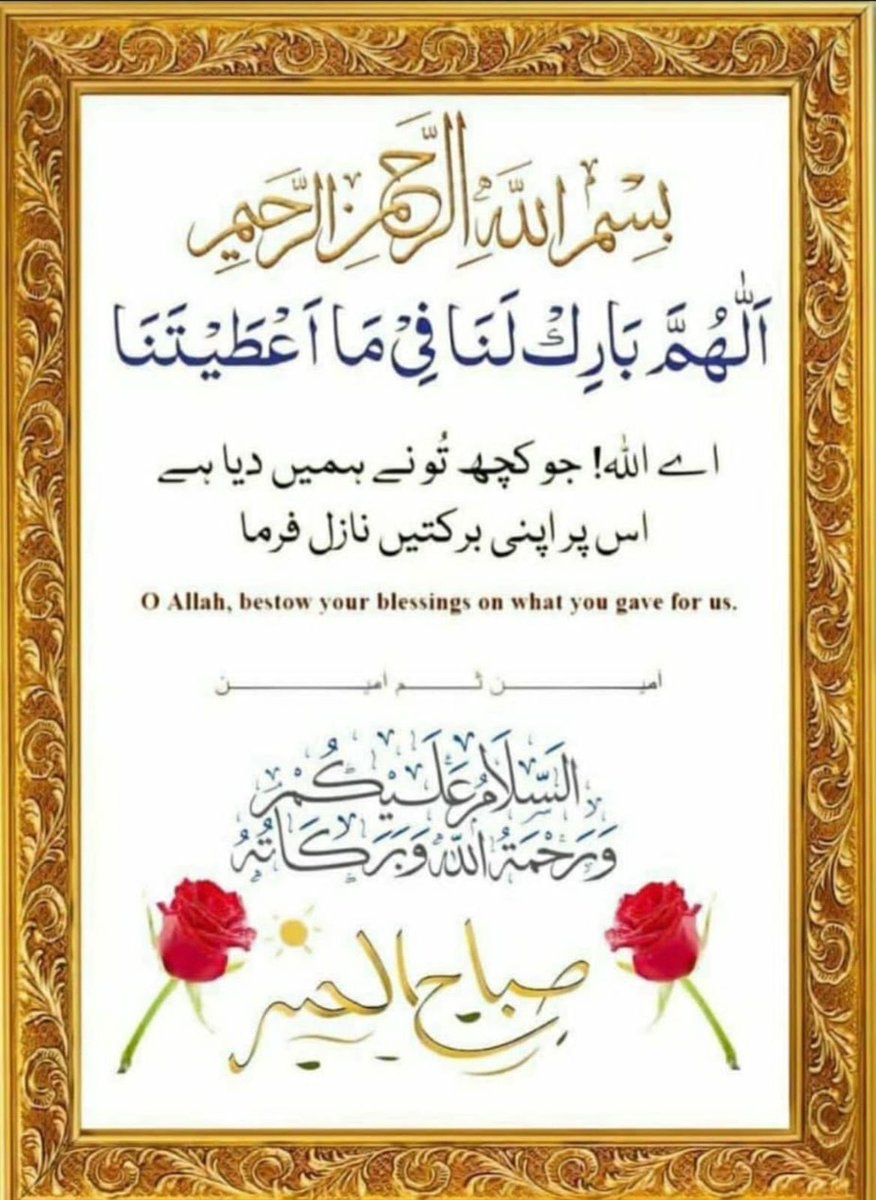 بِسْمِ اللَّهِ الرَّحْمٰنِ الرَّحِيمِ
اَللّٰهُمَّ بَارِكْ لَنَا فِيْ مَا اَعْطَيْتَنَا
اے اللہ! جو کچھ تُو نے ہمیں دیا ہے
اس پر اپنی برکتیں نازل فرما
O Allah, bestow your blessings on what you gave for us.
امیـــــــن ثـــم امیـــــــن
السَّلَامُ عَلَيْكُمْ
وَرَحْمَةُ اللَّهِ وَبَرَكَاتُهُ
صباح الخير